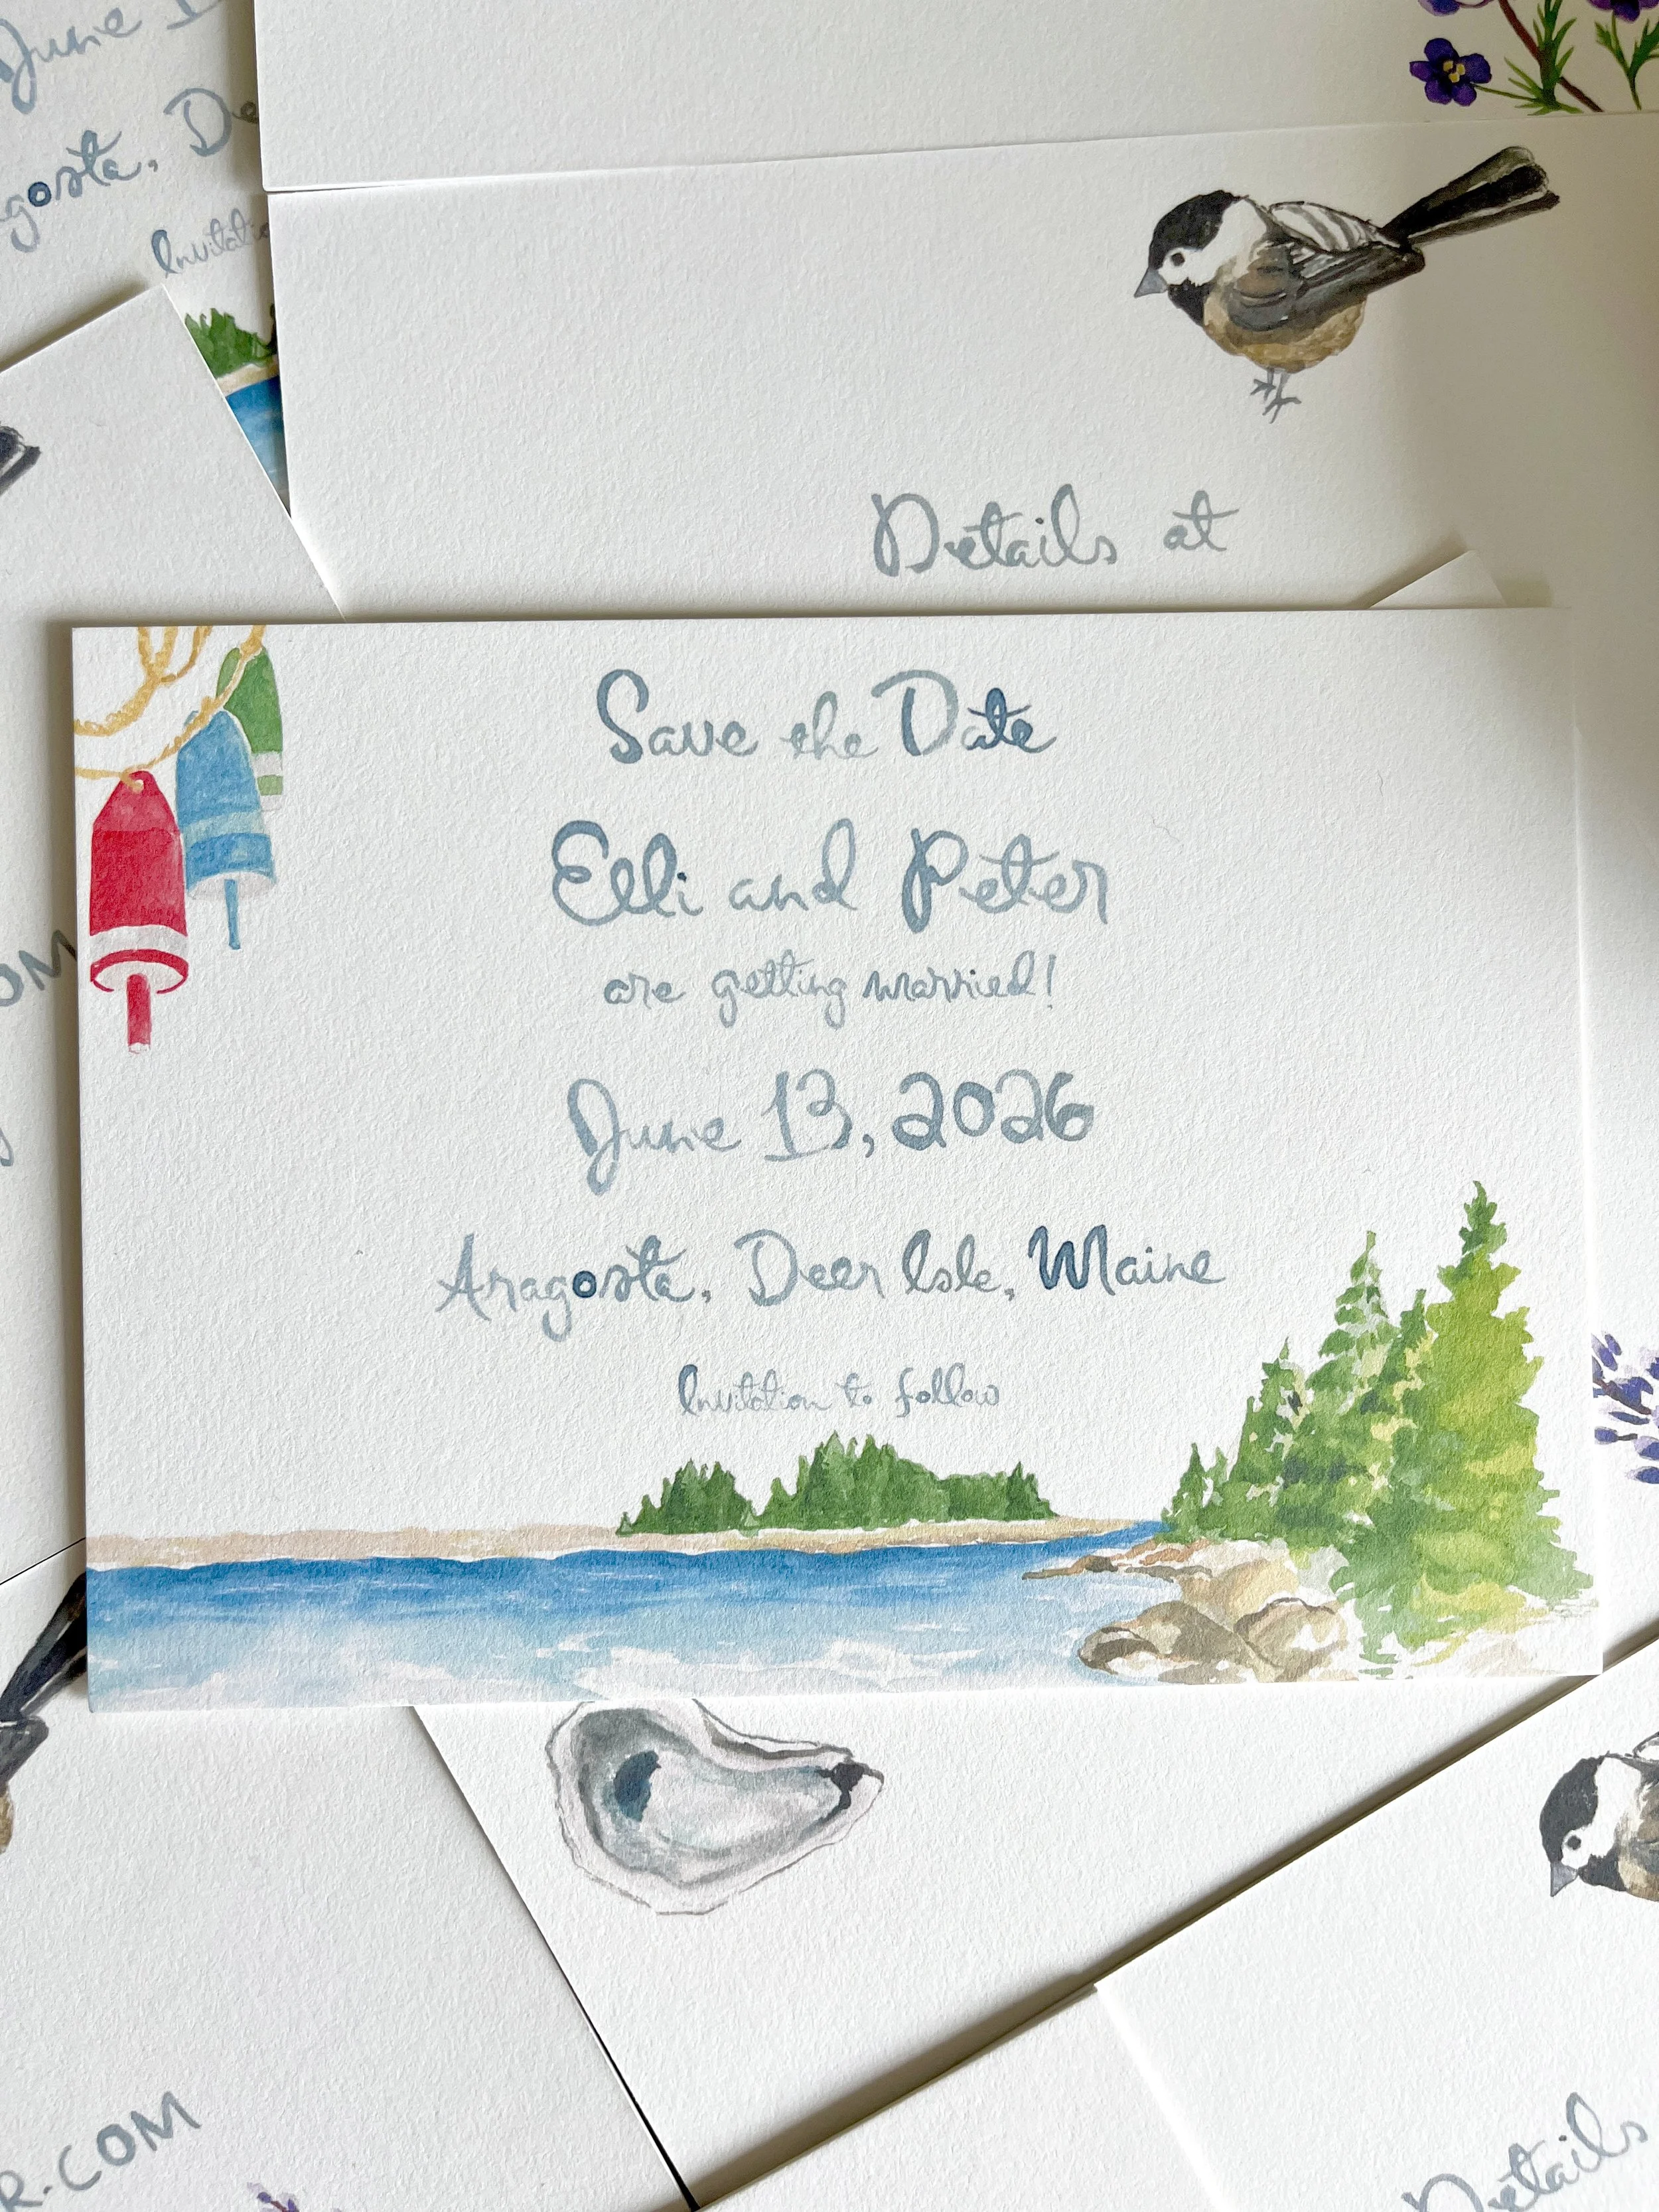 June 1
gosta, De
Invitatio
Details at
Save the Date
Elli and Peter
are getting married!
June 13, 2026
Aragosta, Deer Isle, Maine
Invitation to follow
OM
R.COM
Details